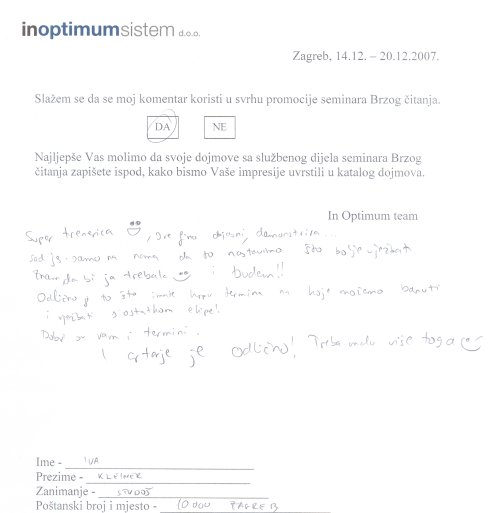 inoptimumsistem d.o.o.
Zagreb, 14.12. – 20.12.2007.
Slažem se da se moj komentar koristi u svrhu promocije seminara Brzog čitanja.
DA NE
Najljepše Vas molimo da svoje dojmove sa službenog dijela seminara Brzog
čitanja zapišete ispod, kako bismo Vaše impresije uvrstili u katalog dojmova.
In Optimum team
Super trenerica, sve fino objasni, demonstrira...
sad je samo na nama da to nastavimo što bolje vježbati
Znam da bi ja trebala i budem!!
Odlično je to što imate hrpu termina na koje možemo banuti
i vježbati s ostatkom ekipe!
Dobri su vam i termini.
I crtanje je odlično! Treba malo više toga
Ime - IVA
Prezime - KLEINER
Zanimanje -
Poštanski broj i mjesto - 10 000 ZAGREB